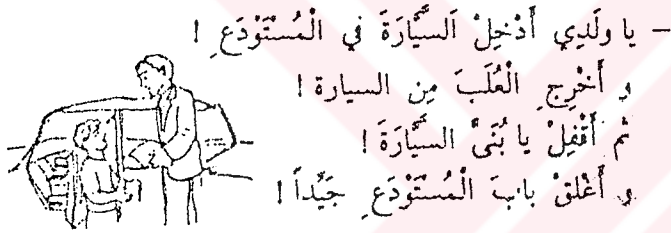 – يا ولَدِي أَدْخِلْ اَلسَّيَّارَةَ في الْمُسْتَوْدَعِ !
و أَخْرِجِ الْعُلَبَ مِن السيارة !
ثم أَقْفِلْ يا بُنَىَّ السيَّارَةَ !
و أَغْلقْ بابَ الْمُسْتَوْدَعِ جَيِّداً !